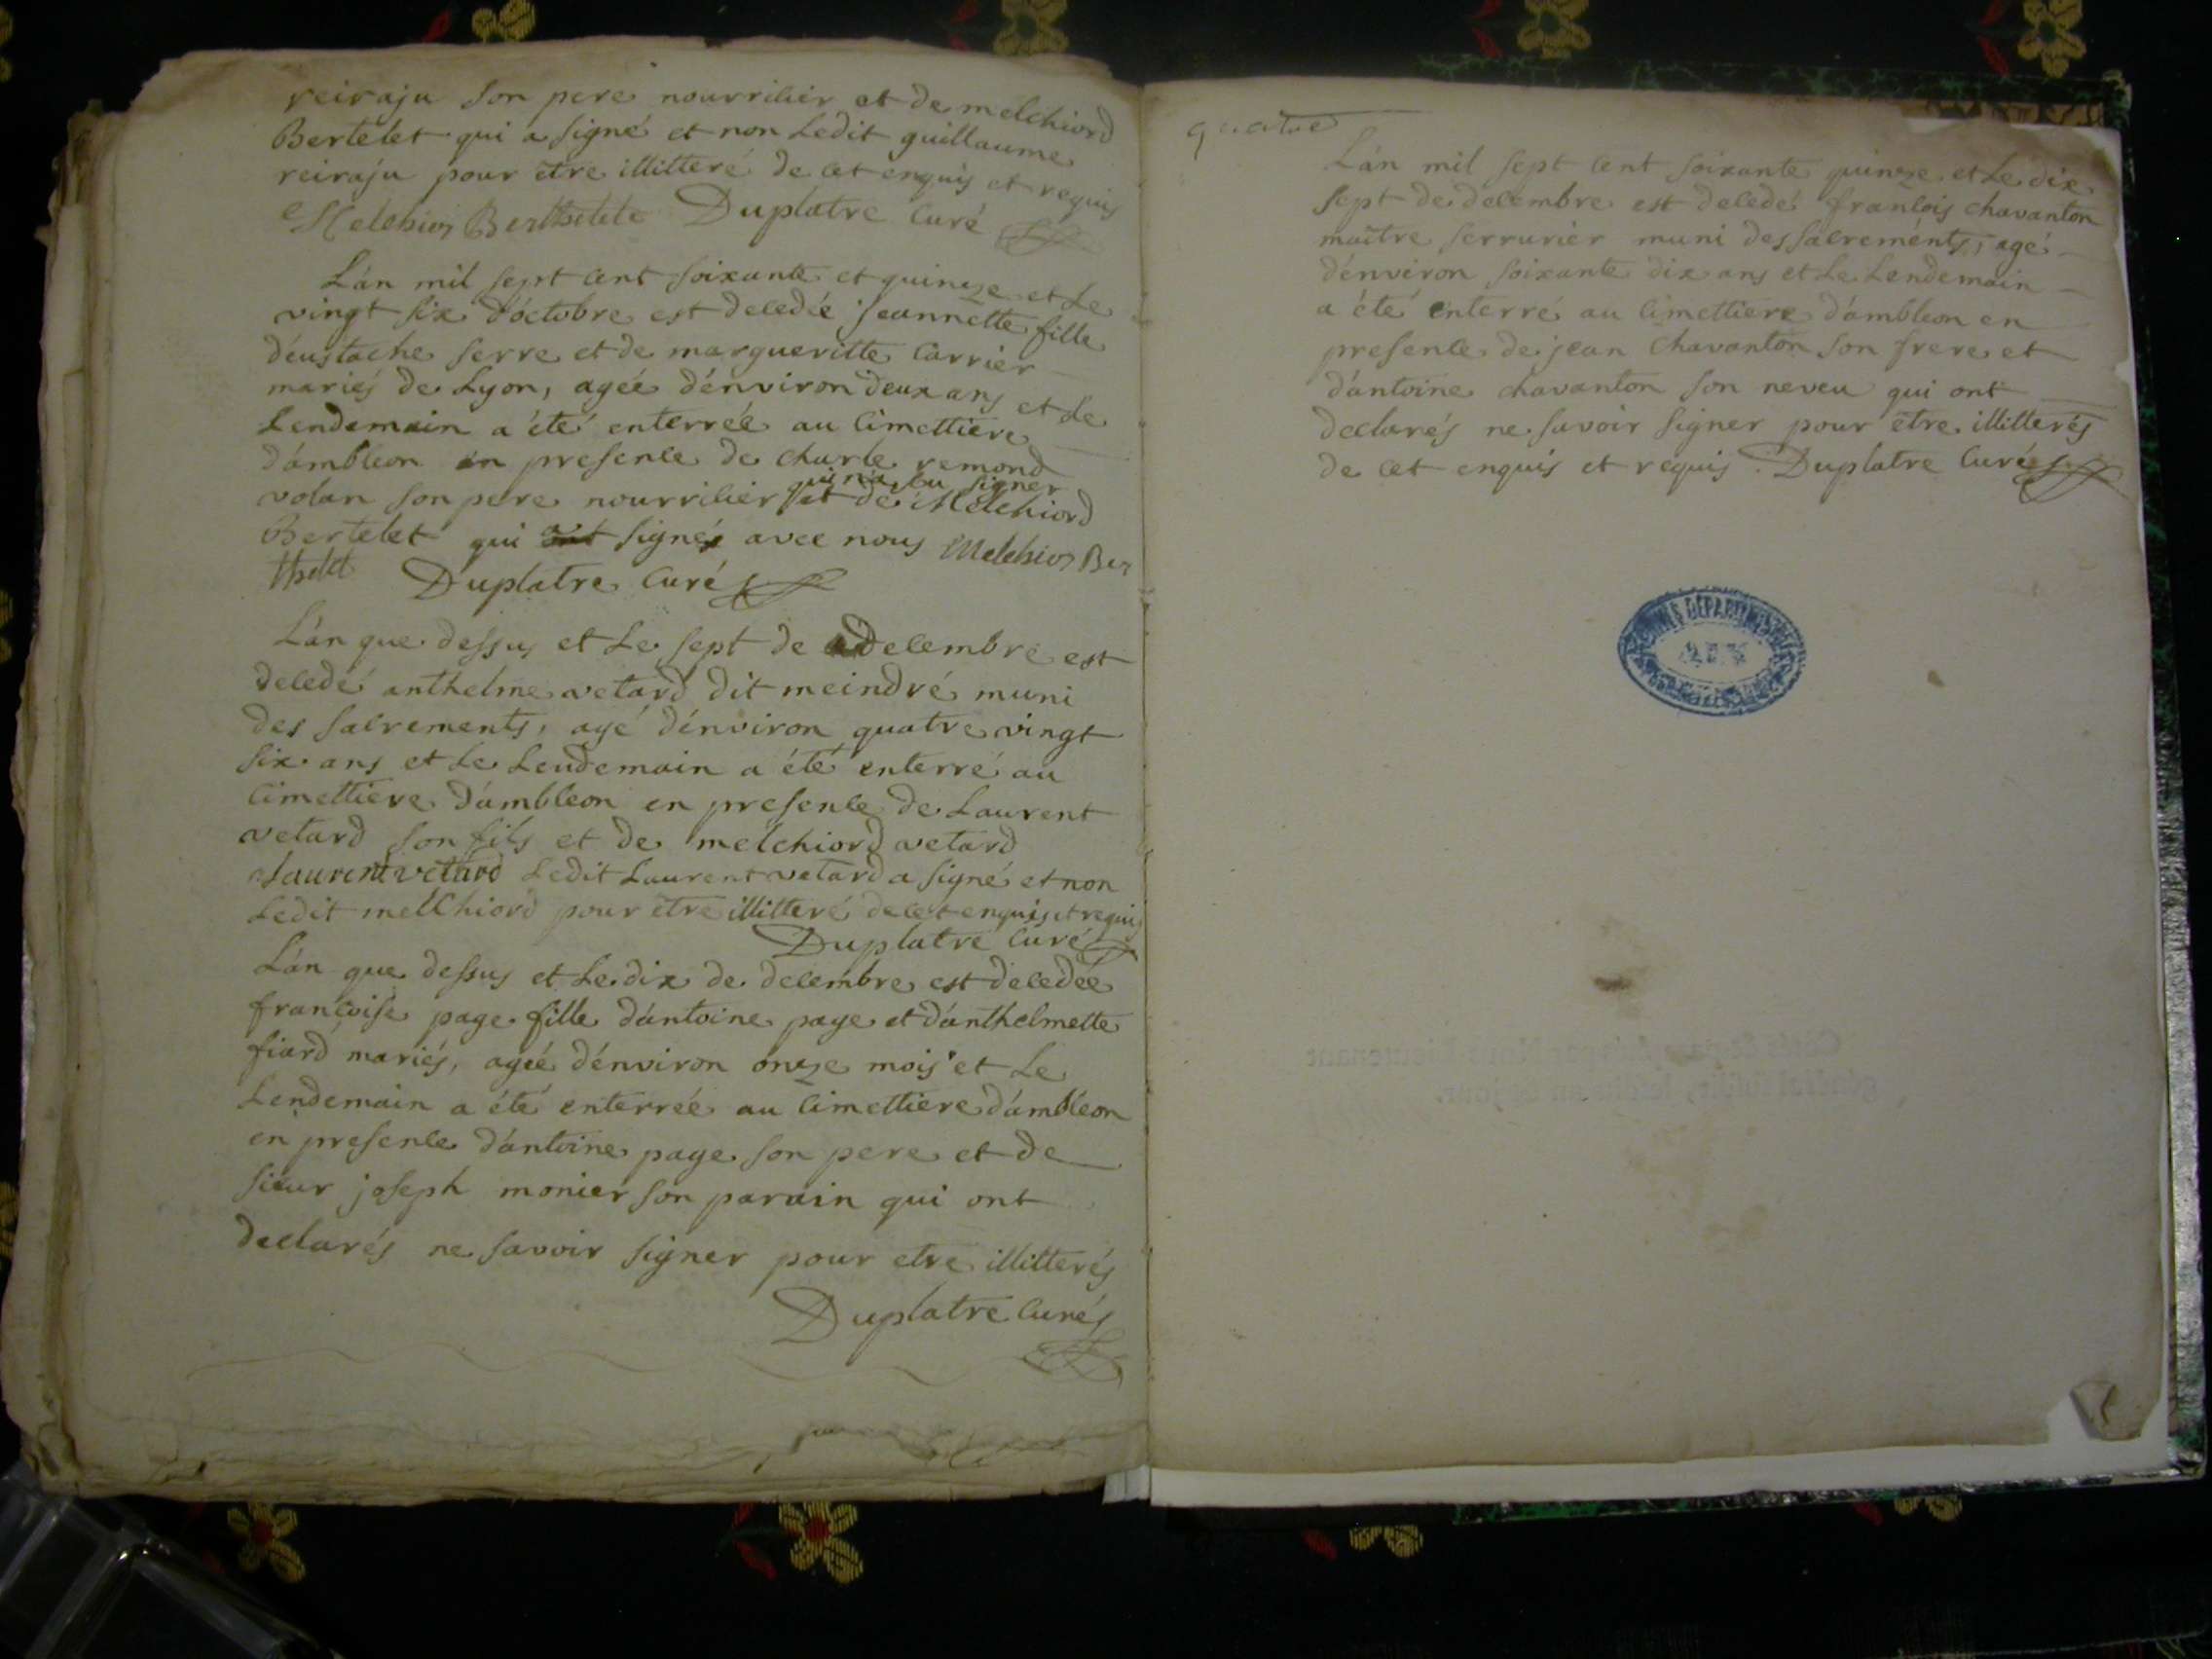 reiraju son pere nourricier et de melchiord
Bertelet qui a signé et non Ledit guillaume
reiraju pour être illitteré de cet enquis et requis
Melchior Berthelete Duplatre Curé
L'an mil sept cent soixante et quinze et Le
vingt six d'octobre est decedée jeannette fille
d'eustache serre et de margueritte carrier
mariés de Lyon, ageé d'énviron deux ans et Le
Lendemain a été enterrée au cimettiere
d'ambleon en presence de charle remond
volan son pere nourricier qui n'a su signer et de Melchiord
Bertelet qui ont signés avec nous Melchior Ber
thelet Duplatre Curé
L'an que dessus et Le sept de decembre est
decedé anthelme vetard dit meindré muni
des sacrements, agé d'énviron quatre vingt
six ans et Le Lendemain a été enterré au
cimettiere d'ambleon en presence de Laurent
vetard son fils et de melchiord vetard
Laurent vetard Ledit Laurent vetard a signé et non
Ledit melchiord pour être illitteré de cet enquis et requis
Duplatre Curé
L'an que dessus et Le dix de decembre est decedée
francoise page fille d'antoine page et d'anthelmette
fiard mariés, ageé d'énviron onze mois et Le
Lendemain a été enterrée au cimettiere d'ambleon
en presence d'antoine page son pere et de
sieur joseph monier son parain qui ont
declarés ne savoir signer pour etre illitterés
Duplatre Curé
quatre
L'an mil sept cent soixante quinze et Le dix
sept de decembre est decedé francois chavanton
maître serrurier muni des sacrements, agé
d'énviron soixante dix ans et Le Lendemain
a été enterré au cimettiere d'ambleon en
presence de jean chavanton son frere et
d'antoine chavanton son neveu qui ont
declarés ne savoir signer pour être illitterés
de cet enquis et requis Duplatre Curé